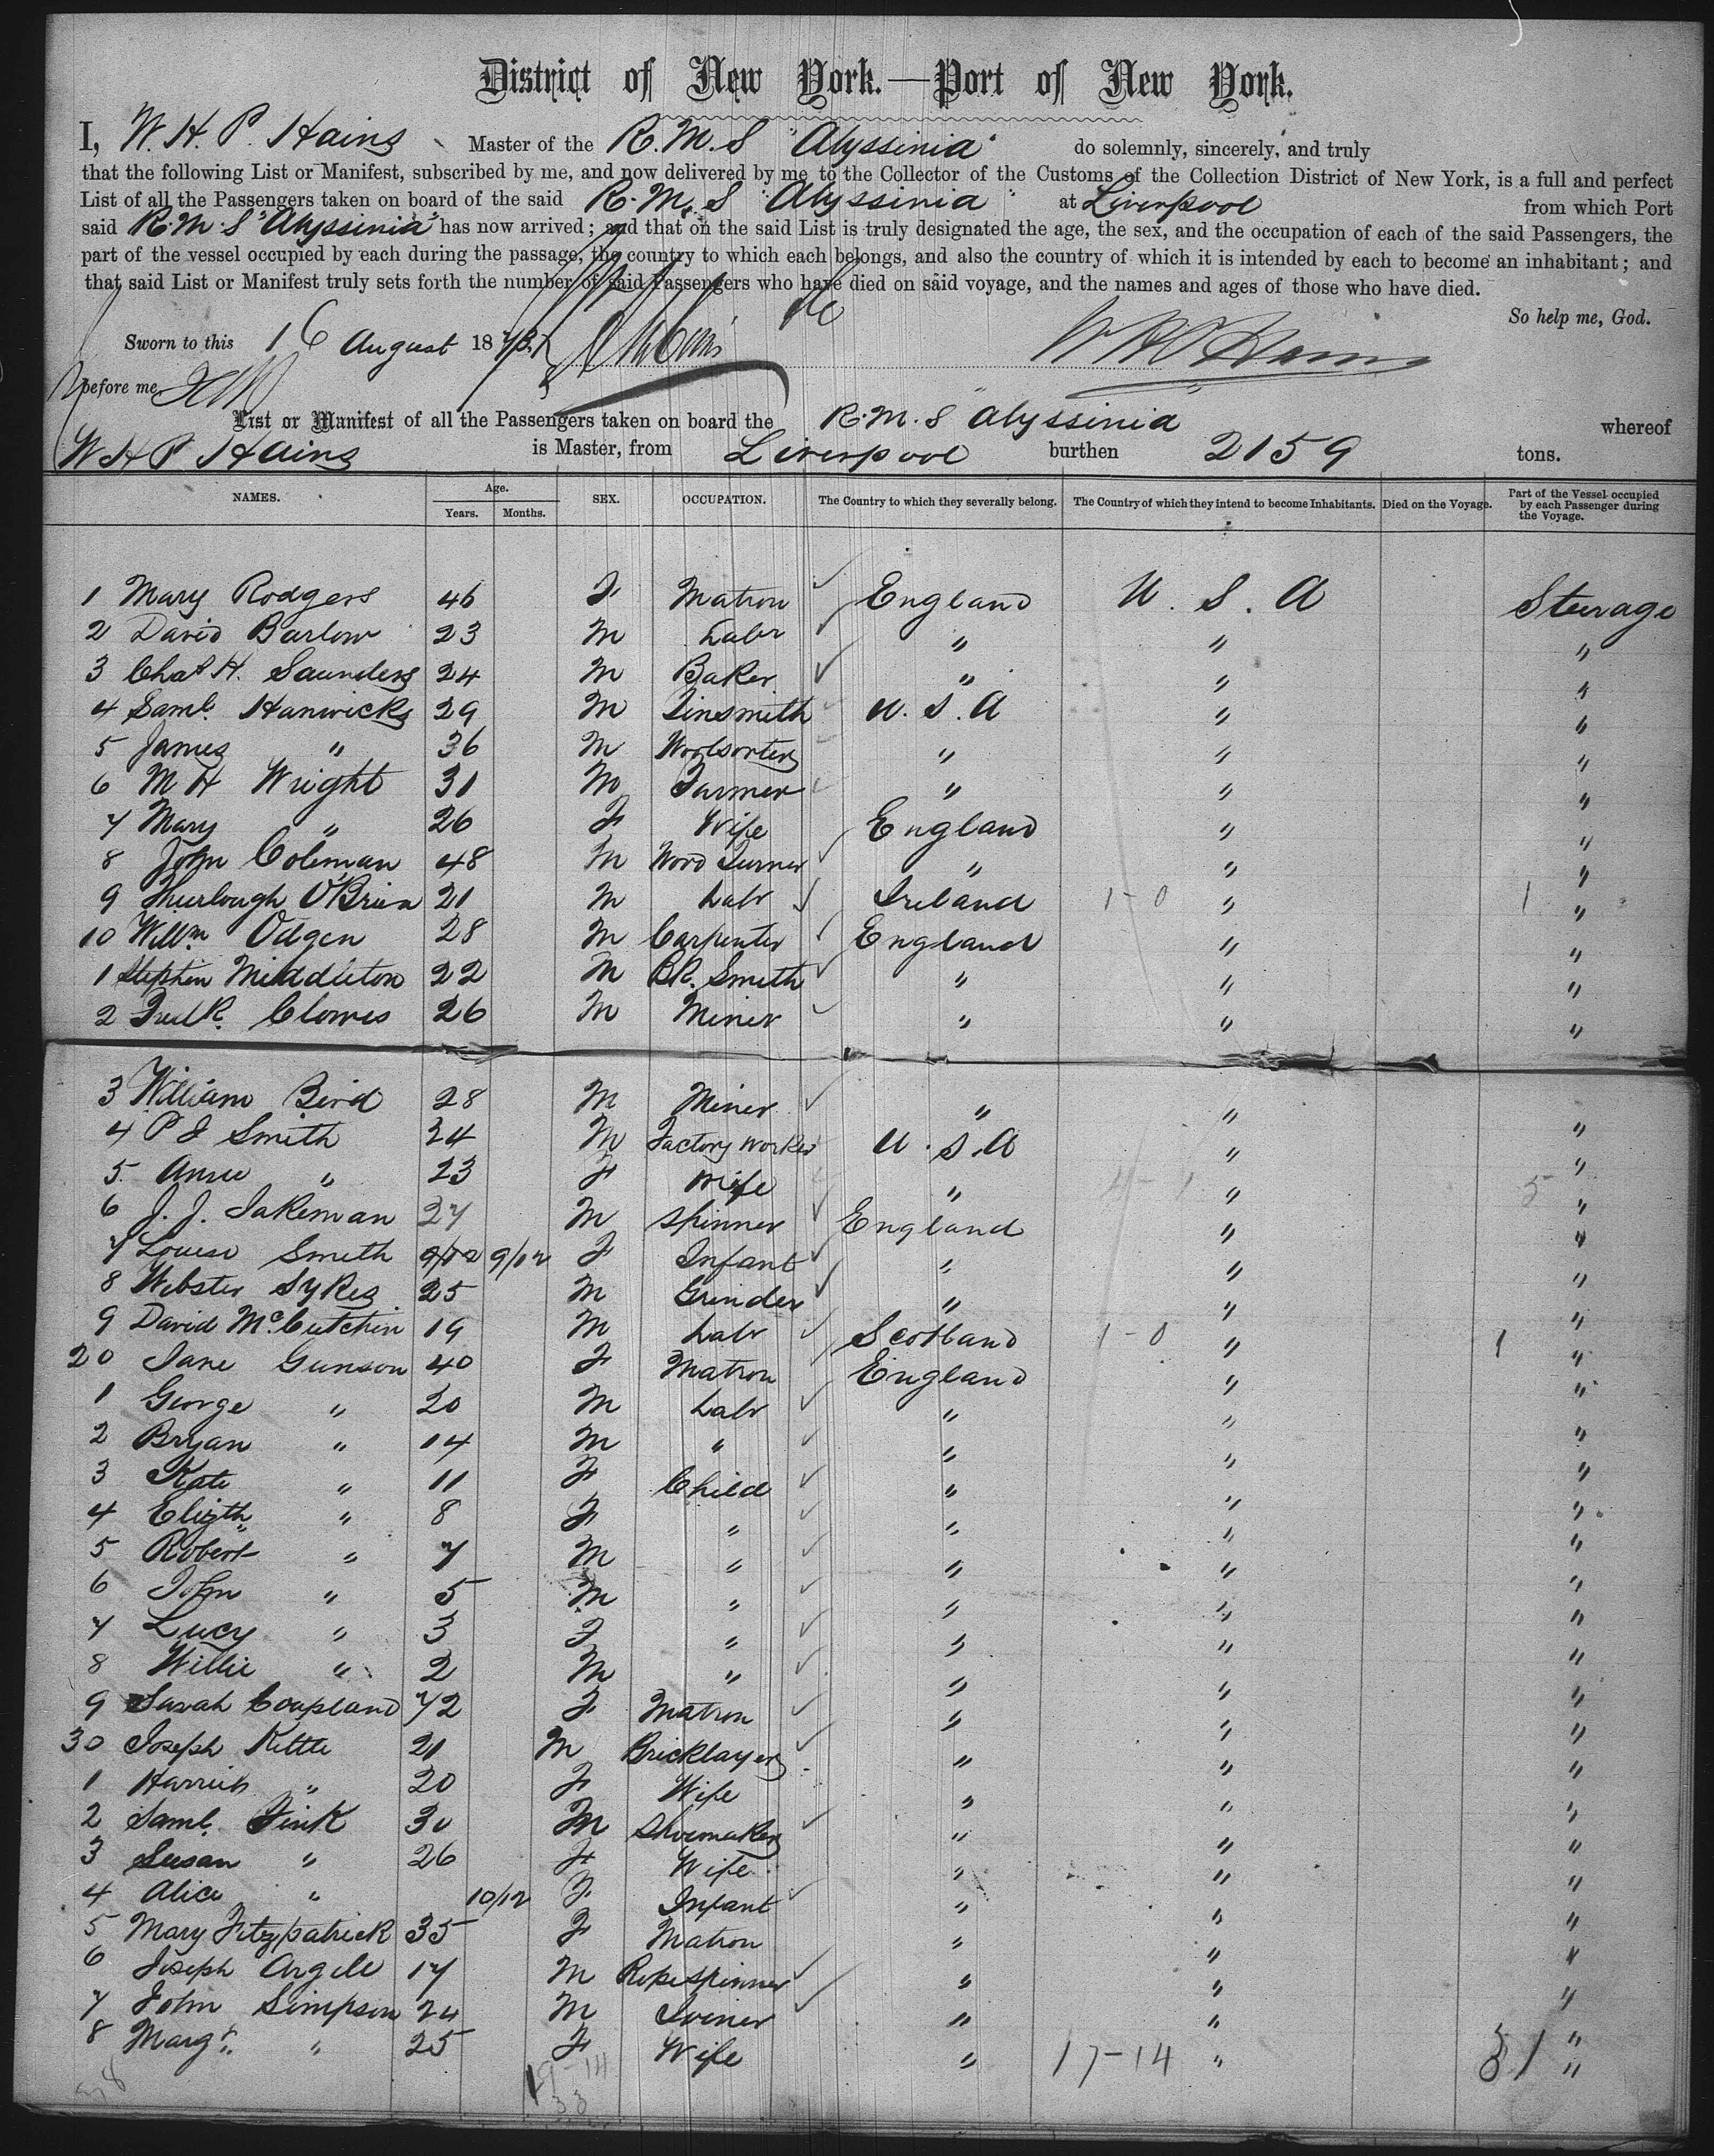 District of New York.—Port of New York.
I, W. H. P. Hains Master of the R.M.S "Abyssinia" do solemnly, sincerely, and truly
that the following List or Manifest, subscribed by me, and now delivered by me to the Collector of the Customs of the Collection District of New York, is a full and perfect
List of all the Passengers taken on board of the said R.M.S "Abyssinia" at Liverpool from which Port
said R.M.S "Abyssinia" has now arrived; and that on the said List is truly designated the age, the sex, and the occupation of each of the said Passengers, the
part of the vessel occupied by each during the passage, the country to which each belongs, and also the country of which it is intended by each to become an inhabitant; and
that said List or Manifest truly sets forth the number of said Passengers who have died on said voyage, and the names and ages of those who have died.
So help me, God.
Sworn to this 16 August 1873 W H P Hains
before me
List or Manifest of all the Passengers taken on board the R.M.S "Abyssinia" whereof
W H P Hains is Master, from Liverpool burthen 2159 tons.
NAMES. Age. Years. Months. SEX. OCCUPATION. The Country to which they severally belong. The Country of which they intend to become Inhabitants. Died on the Voyage. Part of the Vessel occupied by each Passenger during the Voyage.
1 Mary Rodgers 46 F Matron England U.S.A Steerage
2 David Barlow 23 M Labr " " "
3 Chas H. Saunders 24 M Baker " " "
4 Saml. Hanwicks 29 M Tinsmith U.S.A " "
5 James " 36 M Woolsorter " " "
6 M H Wright 31 M Farmer " " "
7 Mary " 26 F Wife England " "
8 John Coleman 48 M Wood Turner " " "
9 Thurlough O'Brien 21 M Labr Ireland 1-0 " 1 "
10 Willm Odgen 28 M Carpenter England " "
1 Stephen Middleton 22 M Bk. Smith " " "
2 Fredk. Clowes 26 M Miner " " "
3 William Bird 28 M Miner " " "
4 P J Smith 24 M Factory Worker U.S.A " "
5 Annie " 23 F Wife " 4-1 " 5 "
6 J. J. Jakeman 27 M Spinner England " "
7 Louisa Smith 9/12 9/12 F Infant " " "
8 Webster Sykes 25 M Grinder " " "
9 David McCutchin 19 M Labr Scotland 1-0 " 1 "
20 Jane Gunson 40 F Matron England " "
1 George " 20 M Labr " " "
2 Bryan " 14 M " " " "
3 Kate " 11 F Child " " "
4 Elizth " 8 F " " " "
5 Robert " 7 M " " " "
6 John " 5 M " " " "
7 Lucy " 3 F " " " "
8 Willie " 2 M " " " "
9 Sarah Coupland 72 F Matron " " "
30 Joseph Kettle 21 M Bricklayer " " "
1 Harriet " 20 F Wife " " "
2 Saml. Fink 30 M Shoemaker " " "
3 Susan " 26 F Wife " " "
4 Alice " 10/12 F Infant " " "
5 Mary Fitzpatrick 35 F Matron " " "
6 Joseph Argile 17 M Ropespinner " " "
7 John Simpson 24 M Joiner " " "
8 Margt. " 25 F Wife " 17-14 " 31 "
38 19-14
33